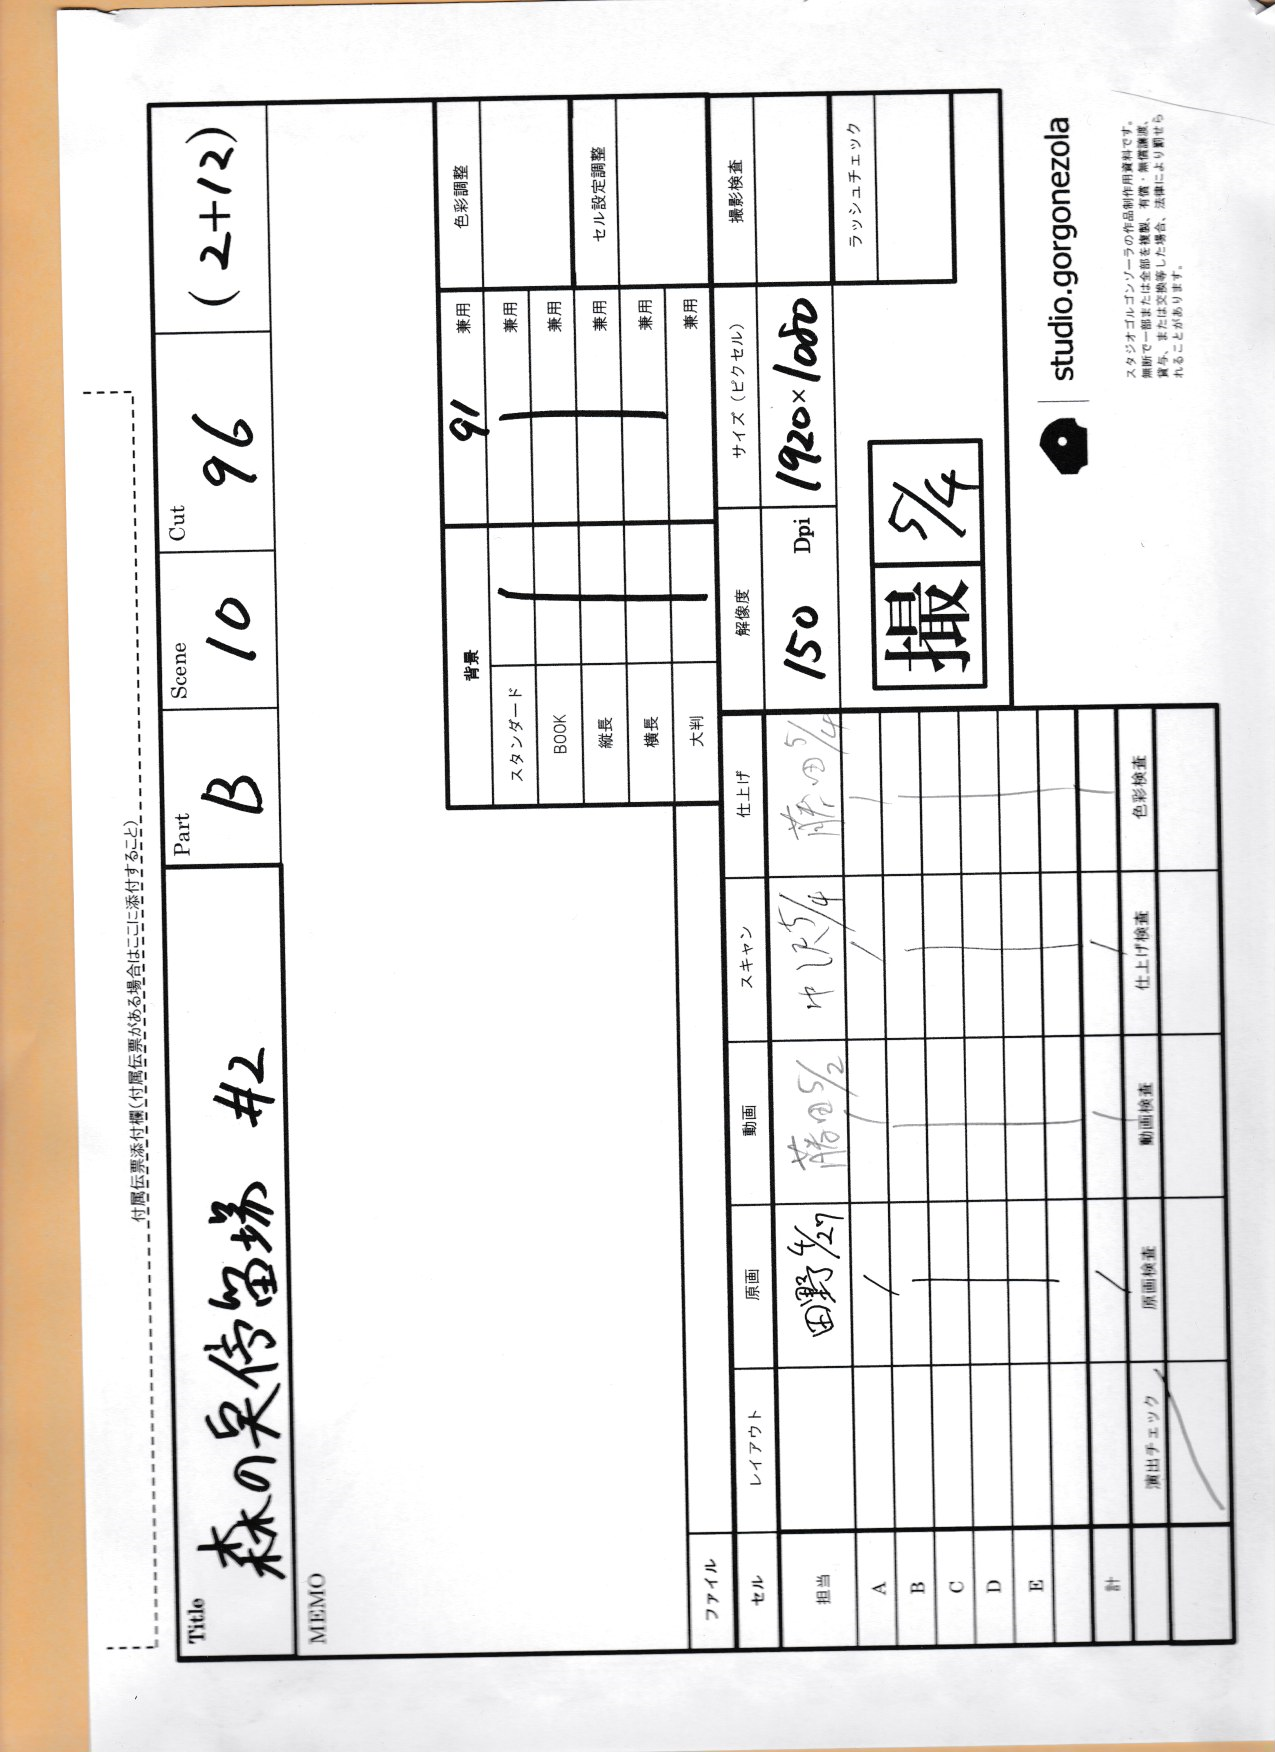 付属伝票添付欄(付属伝票がある場合はここに添付すること)
Title 森の臭停留場 #2
Part B
Scene 10
Cut 96
(2+12)
MEMO
背景 91 兼用
スタンダード 兼用
BOOK 兼用
縦長 兼用
横長 兼用
大判 兼用
色彩調整
セル設定調整
解像度 サイズ(ピクセル) 撮影検査
150 Dpi 1920×1080
ラッシュチェック
撮 5/4
ファイル
セル レイアウト 原画 動画 スキャン 仕上げ
担当 田野 4/27 藤田 5/2 5/4 藤田 5/4
A
B
C
D
E
計
演出チェック 原画検査 動画検査 仕上げ検査 色彩検査
studio.gorgonezola
スタジオゴルゴンゾーラの作品制作用資料です。
無断で一部または全部を複製、有償・無償譲渡、
貸与、または交換等した場合、法律により罰せら
れることがあります。